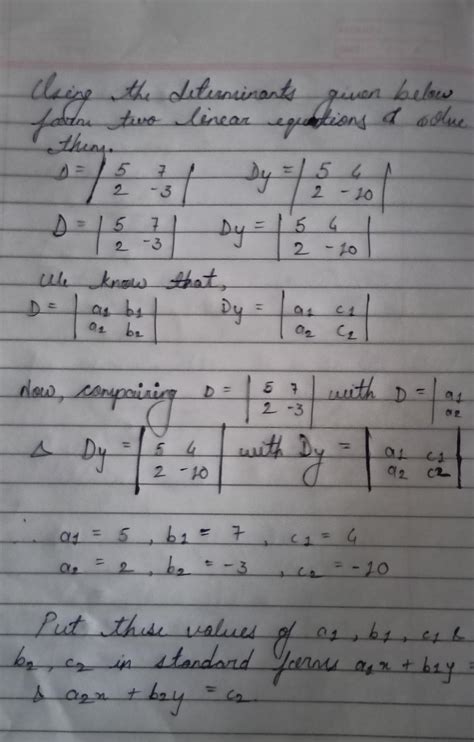 Using the determinants given below
form two linear equations & solve
them.
D = | 5 7 | Dy = | 5 4 |
| 2 -3 | | 2 -10 |
D = | 5 7 | Dy = | 5 4 |
| 2 -3 | | 2 -10 |
We know that,
D = | a1 b1 | Dy = | a1 c1 |
| a2 b2 | | a2 c2 |
Now, comparing D = | 5 7 | with D = | a1
| 2 -3 | | a2
& Dy = | 5 4 | with Dy = | a1 c1 |
| 2 -10 | | a2 c2 |
∴ a1 = 5 , b1 = 7 , c1 = 4
a2 = 2 , b2 = -3 , c2 = -10
Put these values of a1, b1, c1 &
b2, c2 in standard form a1x + b1y =
& a2x + b2y = c2